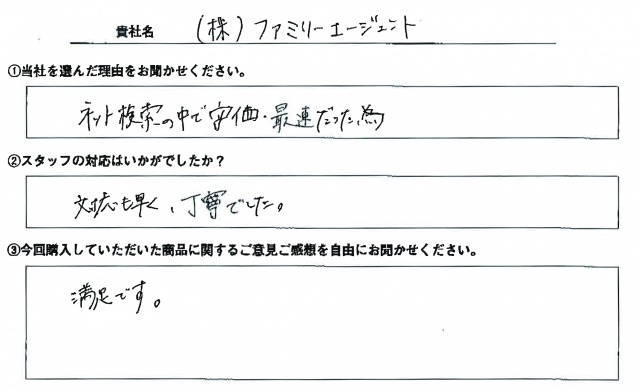 貴社名 (株)ファミリーエージェント
①当社を選んだ理由をお聞かせください。
ネット検索の中で安価・最速だった為
②スタッフの対応はいかがでしたか？
対応も早く、丁寧でした。
③今回購入していただいた商品に関するご意見ご感想を自由にお聞かせください。
満足です。